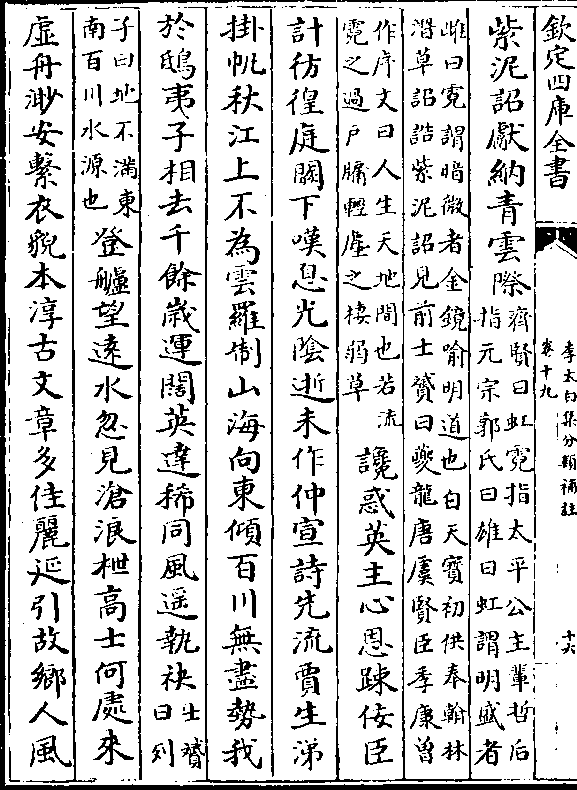 欽定四庫全書
李太白集分類補註
卷十九
十六
紫泥詔獻納青雲際
齊賢曰虹霓指太平公主輩哲后
指元宗郭氏曰雄曰虹謂明盛者
雌曰霓謂暗微者金鏡喻明道也白天寳初供奉翰林
潛草詔誥紫泥詔見前士贇曰夔龍唐虞賢臣季康曾
作序文曰人生天地間也若流
霓之過戶牖輕塵之棲弱草
讒惑英主心恩踈佞臣
計彷徨庭闕下嘆息光陰逝未作仲宣詩先流賈生涕
掛帆秋江上不為雲羅制山海向東傾百川無盡勢我
於鴟夷子相去千餘歲運闊英達稀同風遥執袂
士贇
曰列
子曰地不滿東
南百川水源也
登艫望遠水忽見滄浪枻高士何處來
虛舟渺安繫衣貌本淳古文章多佳麗延引故鄉人風